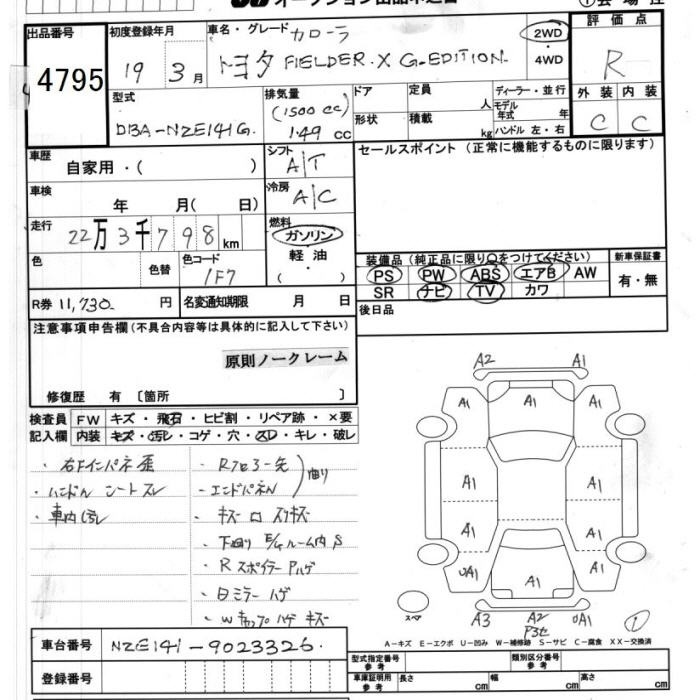 出品番号
4795
初度登録年月
19 年 3 月
車名・グレード
カローラ
トヨタ FIELDER. X G-EDITION
2WD
・
4WD
評価点
R
外装 内装
C C
型式
DBA-NZE141G.
排気量
(1500 cc)
1.49 cc
ドア
形状
定員 人
積載 kg
ディーラー・並行
モデル年式 年
ハンドル 左・右
車歴
自家用・( )
シフト
A/T
セールスポイント (正常に機能するものに限ります)
車検
年 月( 日)
冷房
A/C
走行
22万3千798km
燃料
ガソリン
軽油
・
( )
色
色替
色コード
1F7
装備品 (純正品に限り○をつけてください)
PS PW ABS エアB AW
SR ナビ TV カワ
新車保証書
有・無
R券 11,730 円
名変通知期限 月 日
後日品
注意事項申告欄(不具合内容等は具体的に記入して下さい)
原則ノークレーム
修復歴 有 [箇所 ]
検査員
記入欄
FW キズ・飛石・ヒビ割・リペア跡・×要
内装 キズ・汚レ・コゲ・穴・スレ・キレ・破レ
・右Fインパネ歪
・ハンドル シートスレ
・車内汚レ
・Rフロアー先
・エンドパネル
曲り
・キズ 凹 スリキズ
・下廻り E/gルーム内 S
・R スポイラー ハゲ
・日ミラー ハゲ
・Wキャップ ハゲ キズ
A2 A1
A1 A1 A1
A1 A1
A1 A1
A1
UA1 A1
A1
スペア
A3 A2 UA1
①
A-キズ E-エクボ U-凹み W-補修跡 S-サビ C-腐食 XX-交換済
車台番号
NZE141-9023326.
登録番号
型式指定番号
参考
類別区分番号
参考
車庫証明用
参考
長さ cm
幅 cm
高さ cm